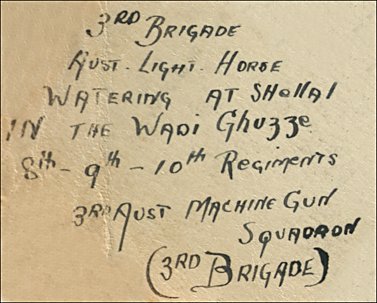 3RD BRIGADE
AUST. LIGHT. HORSE
WATERING AT SHellAl
IN THE WADI Ghuzze
8th - 9th - 10th REGIMENTS
3RD AUST MACHINE GUN
SQUADRON
(3RD BRIGADE)